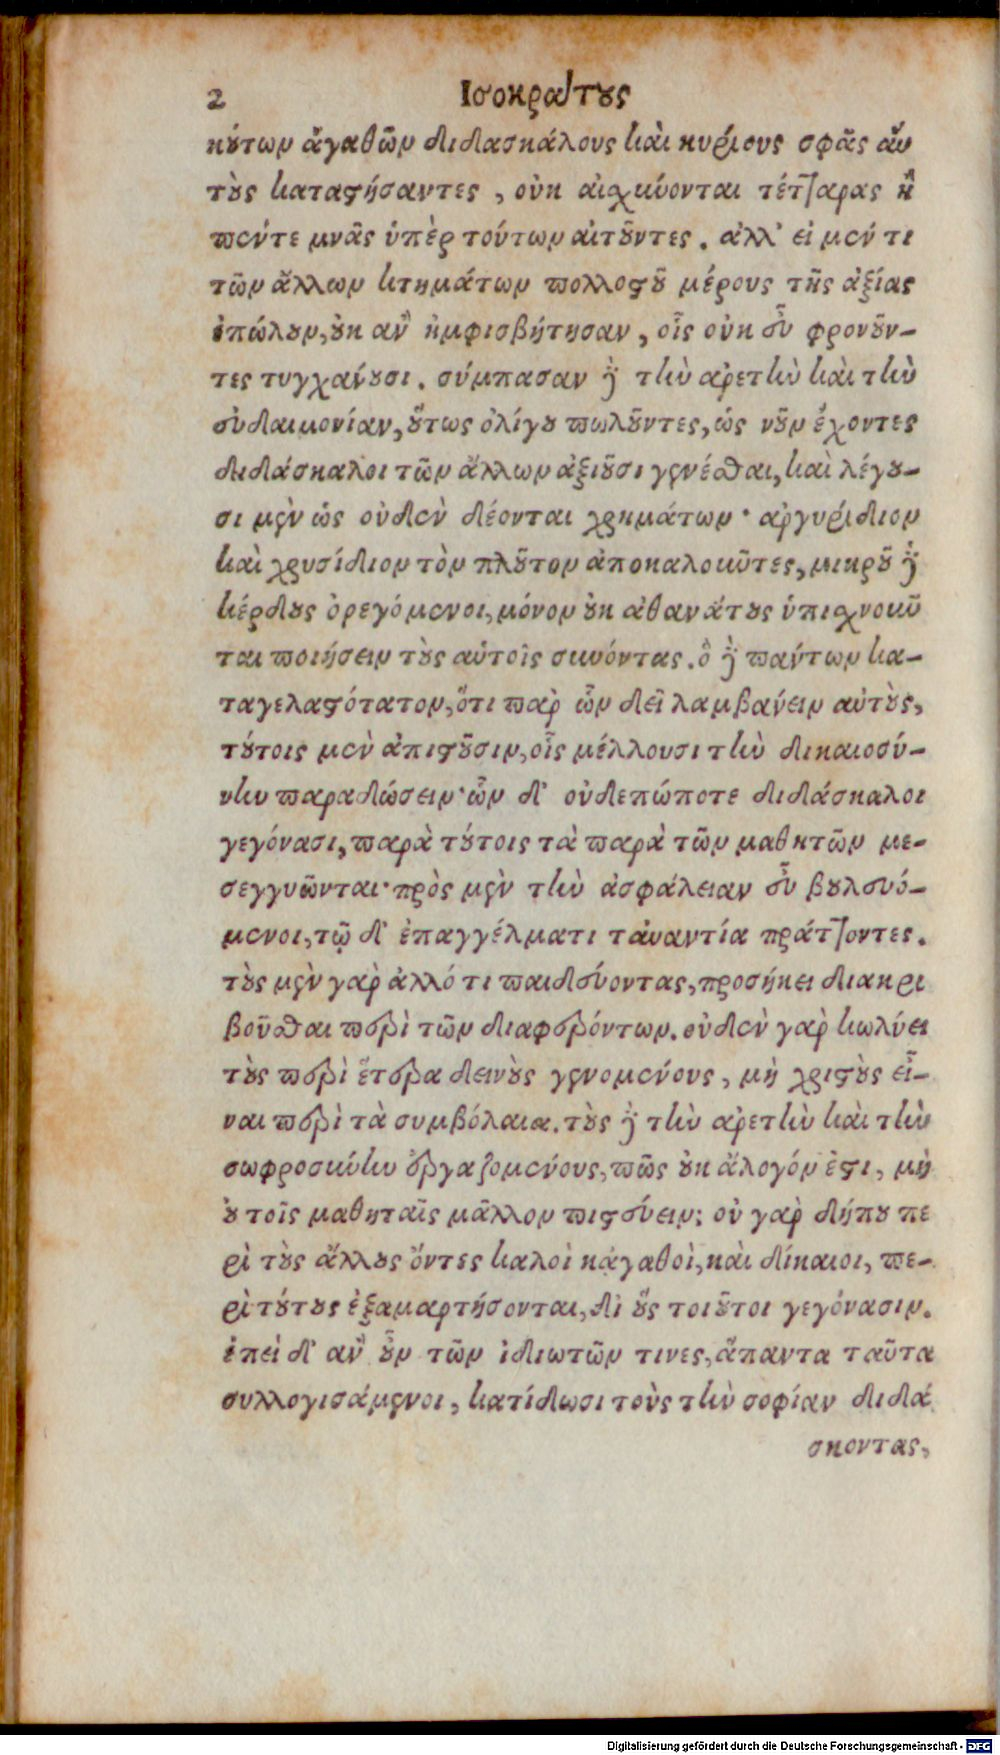 2 Ισοκράτους
κούτων ἀγαθῶν διδασκάλους καὶ κυρίους σφᾶς αὐ
τοὺς καταστήσαντες, οὐκ αἰσχύνονται τέτταρας ἢ
πέντε μνᾶς ὑπὲρ τούτων αἰτοῦντες. ἀλλ' εἰ μέν τι
τῶν ἄλλων κτημάτων πολλοστοῦ μέρους τῆς ἀξίας
ἐπώλουν, οὐκ ἂν ἠμφισβήτησαν, οἷς οὐκ εὖ φρονοῦν-
τες τυγχάνουσι. σύμπασαν δὲ τὴν ἀρετὴν καὶ τὴν
εὐδαιμονίαν, οὕτως ὀλίγου πωλοῦντες, ὡς νοῦν ἔχοντες
διδάσκαλοι τῶν ἄλλων ἀξιοῦσι γενέσθαι, καὶ λέγου-
σι μὲν ὡς οὐδὲν δέονται χρημάτων· ἀργυρίδιον
καὶ χρυσίδιον τὸν πλοῦτον ἀποκαλοῦντες, μικροῦ δὲ
κέρδους ὀρεγόμενοι, μόνον οὐκ ἀθανάτους ὑπισχνοῦν
ται ποιήσειν τοὺς αὐτοῖς συνόντας. ὃ δὲ πάντων κα-
ταγελαστότατον, ὅτι παρ' ὧν δεῖ λαμβάνειν αὐτοὺς,
τούτοις μὲν ἀπιστοῦσιν, οἷς μέλλουσι τὴν δικαιοσύ-
νην παραδώσειν· ὧν δ' οὐδεπώποτε διδάσκαλοι
γεγόνασι, παρὰ τούτοις τὰ παρὰ τῶν μαθητῶν με-
σεγγυῶνται· πρὸς μὲν τὴν ἀσφάλειαν εὖ βουλευό-
μενοι, τῷ δ' ἐπαγγέλματι τἀναντία πράττοντες.
τοὺς μὲν γὰρ ἀλλό τι παιδεύοντας, προσήκει διακρι
βοῦσθαι περὶ τῶν διαφερόντων. οὐδὲν γὰρ κωλύει
τοὺς περὶ ἕτερα δεινοὺς γενομένους, μὴ χριστοὺς εἶ-
ναι περὶ τὰ συμβόλαια. τοὺς δὲ τὴν ἀρετὴν καὶ τὴν
σωφροσύνην ἐργαζομένους, πῶς οὐκ ἄλογόν ἐστι, μὴ
οὐ τοῖς μαθηταῖς μᾶλλον πιστεύειν; οὐ γὰρ δήπου πε
ρὶ τοὺς ἄλλους ὄντες καλοὶ κἀγαθοὶ, καὶ δίκαιοι, πε-
ρὶ τούτους ἐξαμαρτήσονται, δι' οὓς τοιοῦτοι γεγόνασιν.
ἐπεὶ δ' ἂν οὖν τῶν ἰδιωτῶν τινες, ἅπαντα ταῦτα
συλλογισάμενοι, κατίδωσι τοὺς τὴν σοφίαν διδά
σκοντας,
Digitalisierung gefördert durch die Deutsche Forschungsgemeinschaft - DFG